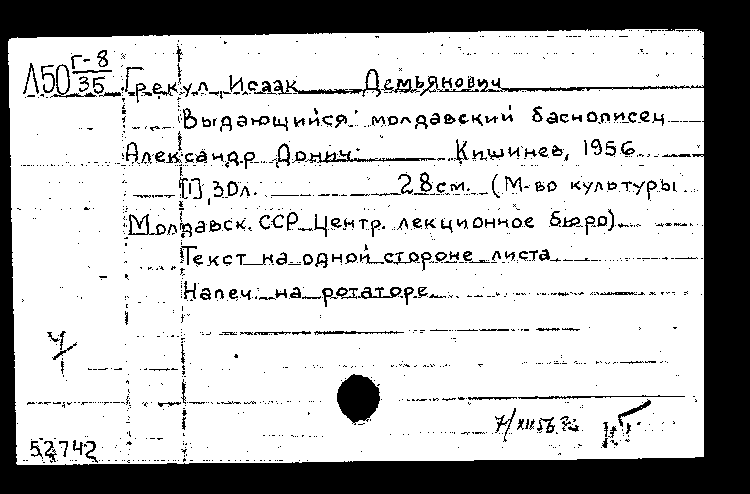 Л50 Г-8/35 Грекул, Исаак Демьянович
Выдающийся молдавский баснописец
Александр Донич. Кишинев, 1956
[1], 30л. 28см. (М-во культуры
Молдавск. ССР. Центр. лекционное бюро).
Текст на одной стороне листа.
Напеч. на ротаторе.
52742